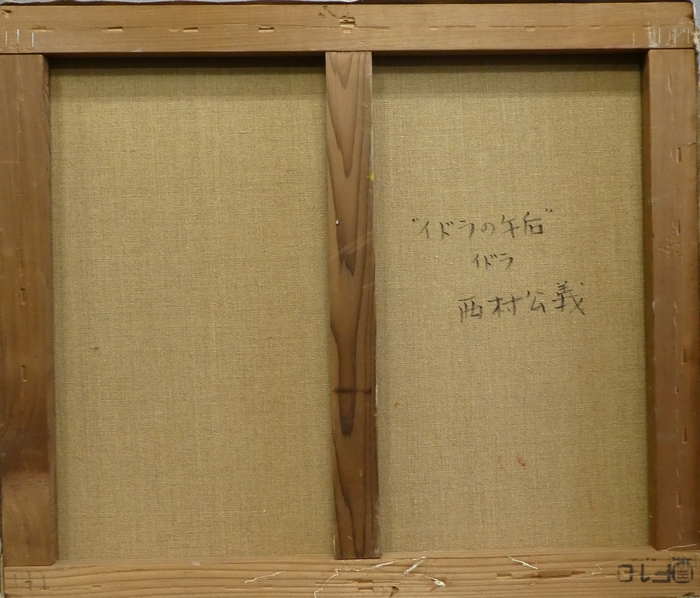 "イドラの午后"
イドラ
西村公義
F10